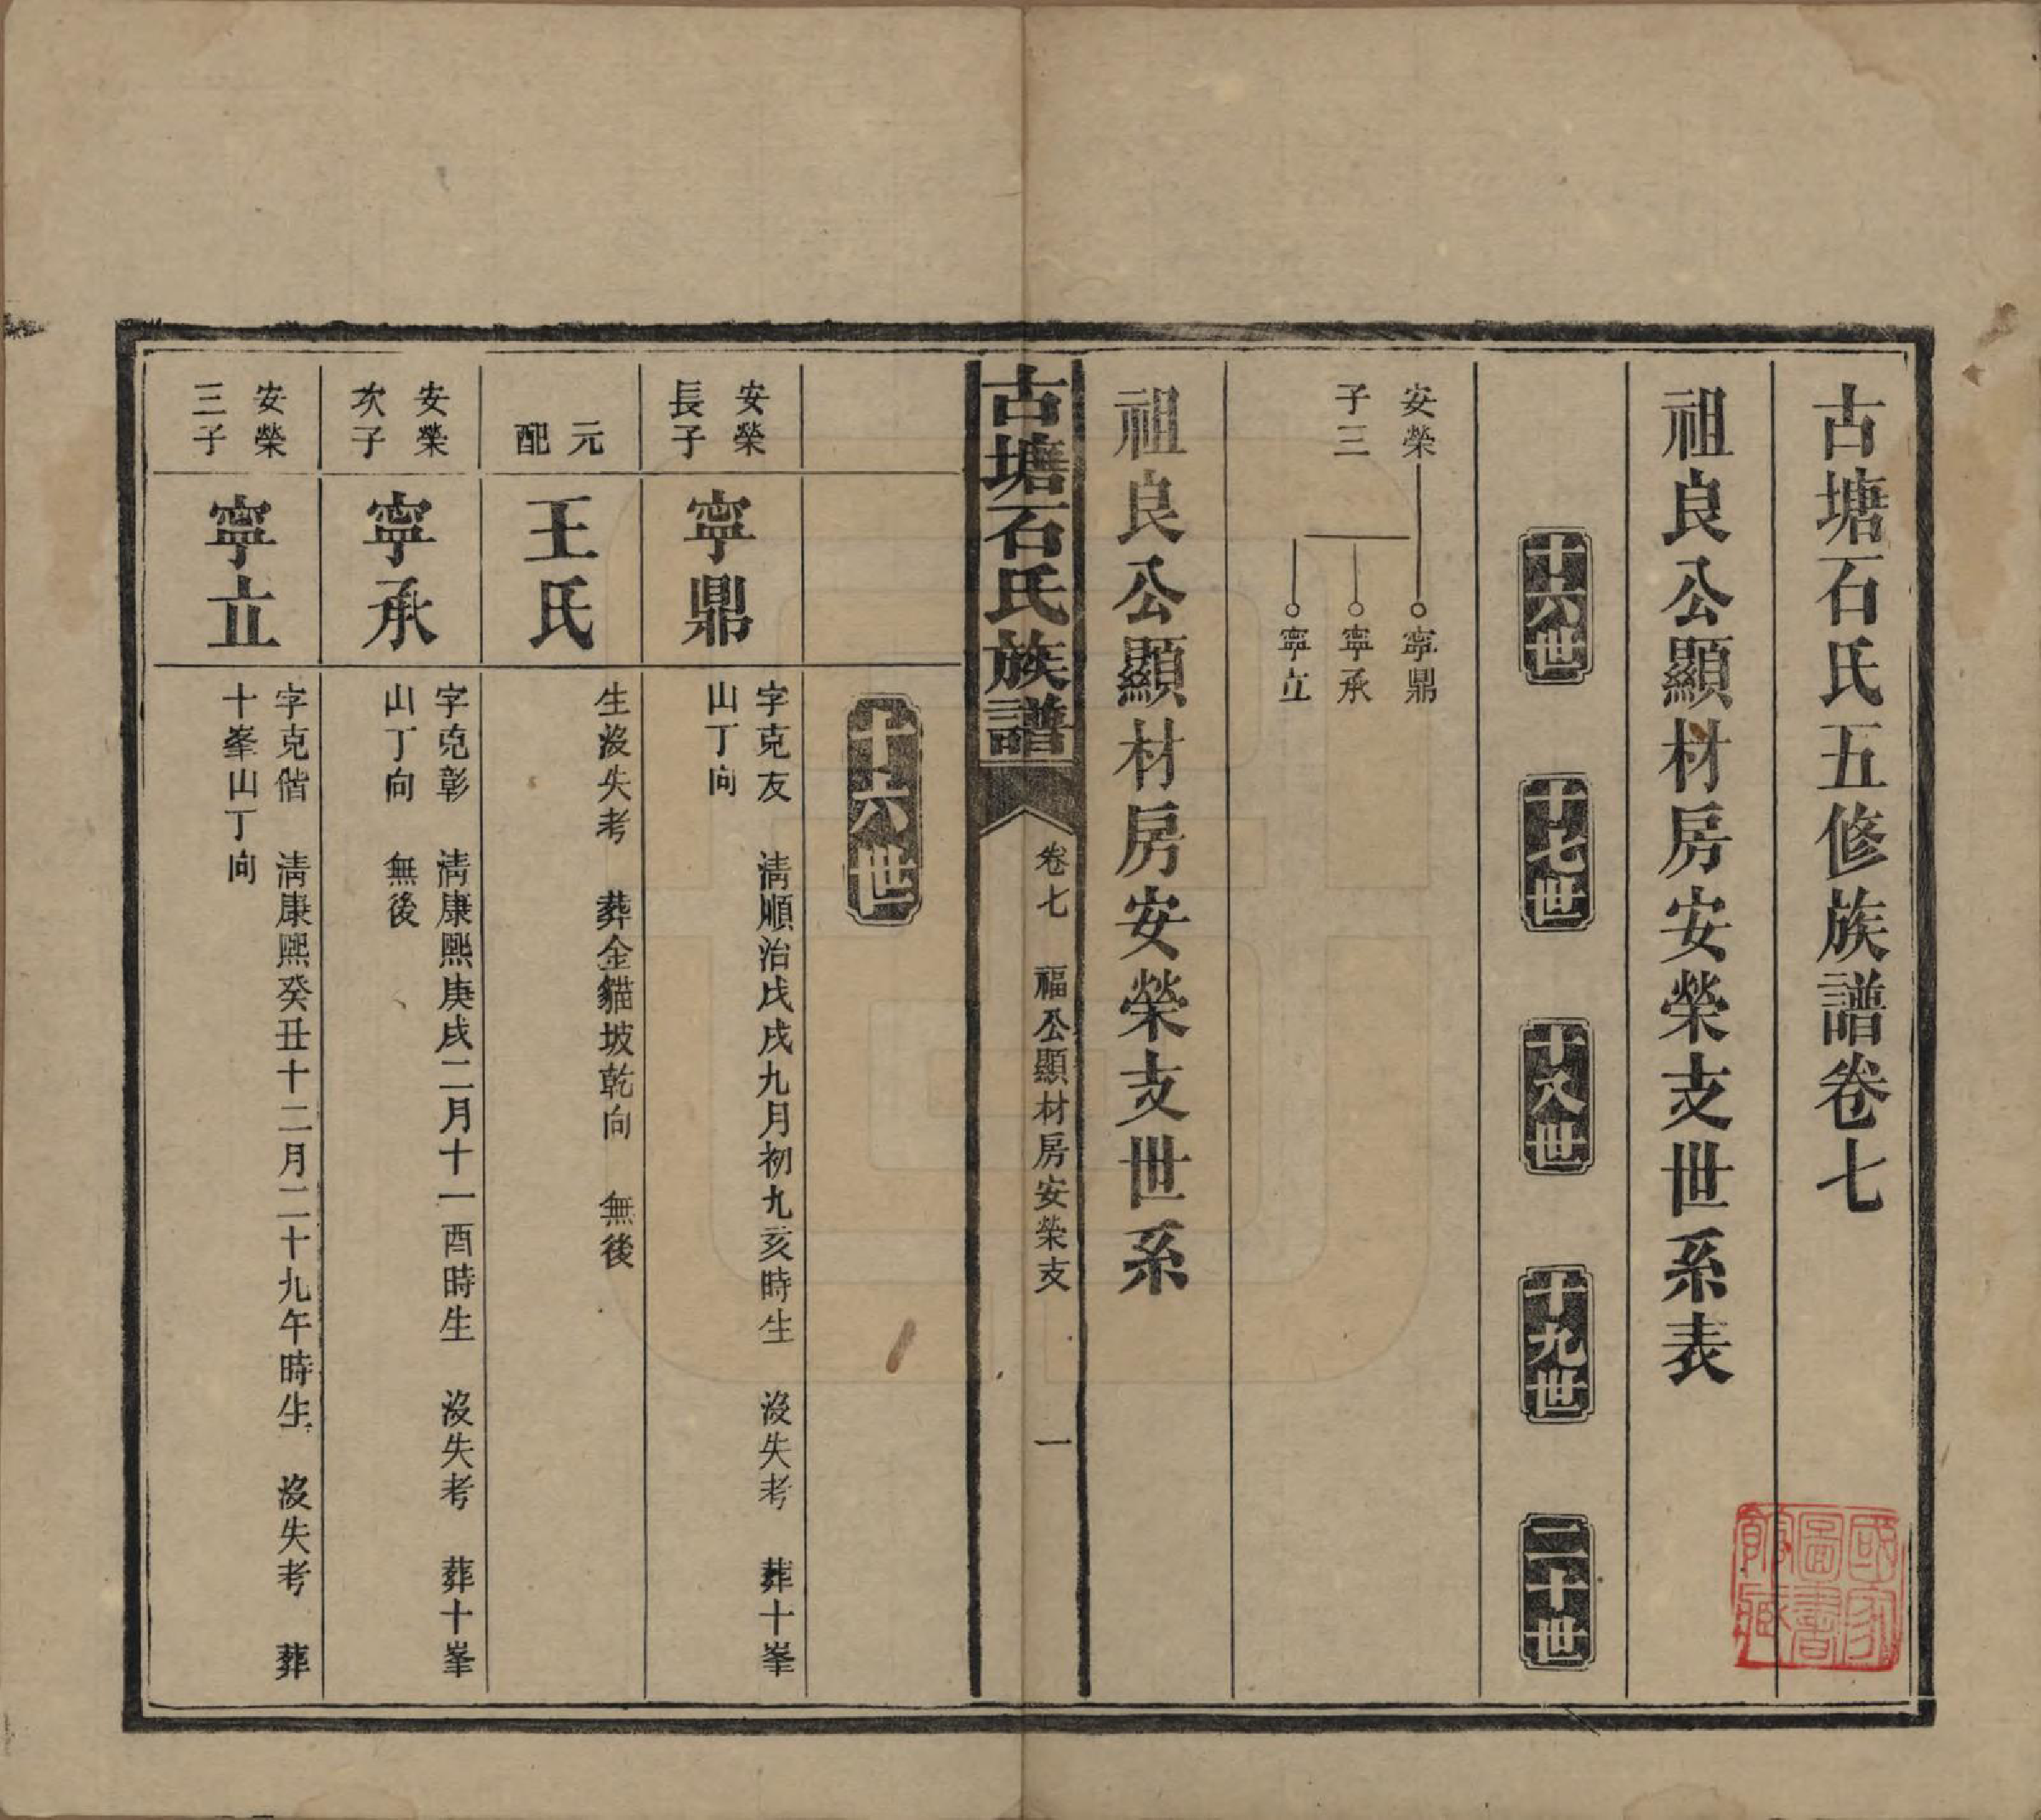 古塘石氏五修族譜卷七
祖良公顯材房安榮支世系表
十六世　十七世　十八世　十九世　二十世
安榮
子三
寧鼎
寧承
寧立
祖良公顯材房安榮支世系
古塘石氏族譜　卷七　福公顯材房安榮支　一
十六世
安榮
長子
寧鼎
字克友　淸順治戊戌九月初九亥時生　沒失考　葬十峯
山丁向
元
配
王氏
生沒失考　葬金貓坡乾向　無後
安榮
次子
寧承
字克彰　淸康熙庚戌二月十一酉時生　沒失考　葬十峯
山丁向　無後
安榮
三子
寧立
字克偕　淸康熙癸丑十二月二十九午時生　沒失考　葬
十峯山丁向
國家
圖書
館藏